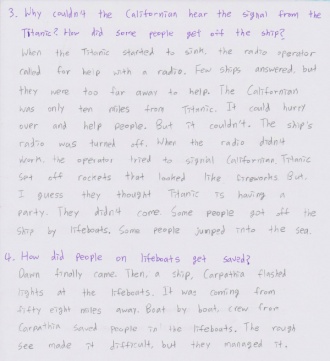 3. Why couldn't the Californian hear the signal from the
Titanic? How did some people get off the ship?
When the Titanic started to sink, the radio operator
called for help with a radio. Few ships answered, but
they were too far away to help. The Californian
was only ten miles from Titanic. It could hurry
over and help people. But it couldn't. The ship's
radio was turned off. When the radio didn't
work, the operator tried to signal Californian. Titanic
set off rockets that looked like fireworks But.
I guess they thought Titanic is having a
party. They didn't come. Some people got off the
ship by lifeboats. Some people jumped into the sea.
4. How did people on lifeboats get saved?
Dawn finally came. Then, a ship, Carpathia flashed
lights at the lifeboats. It was coming from
fifty eight miles away. Boat by boat, crew from
Carpathia saved people in the lifeboats. The rough
see made it difficult, but they managed it.